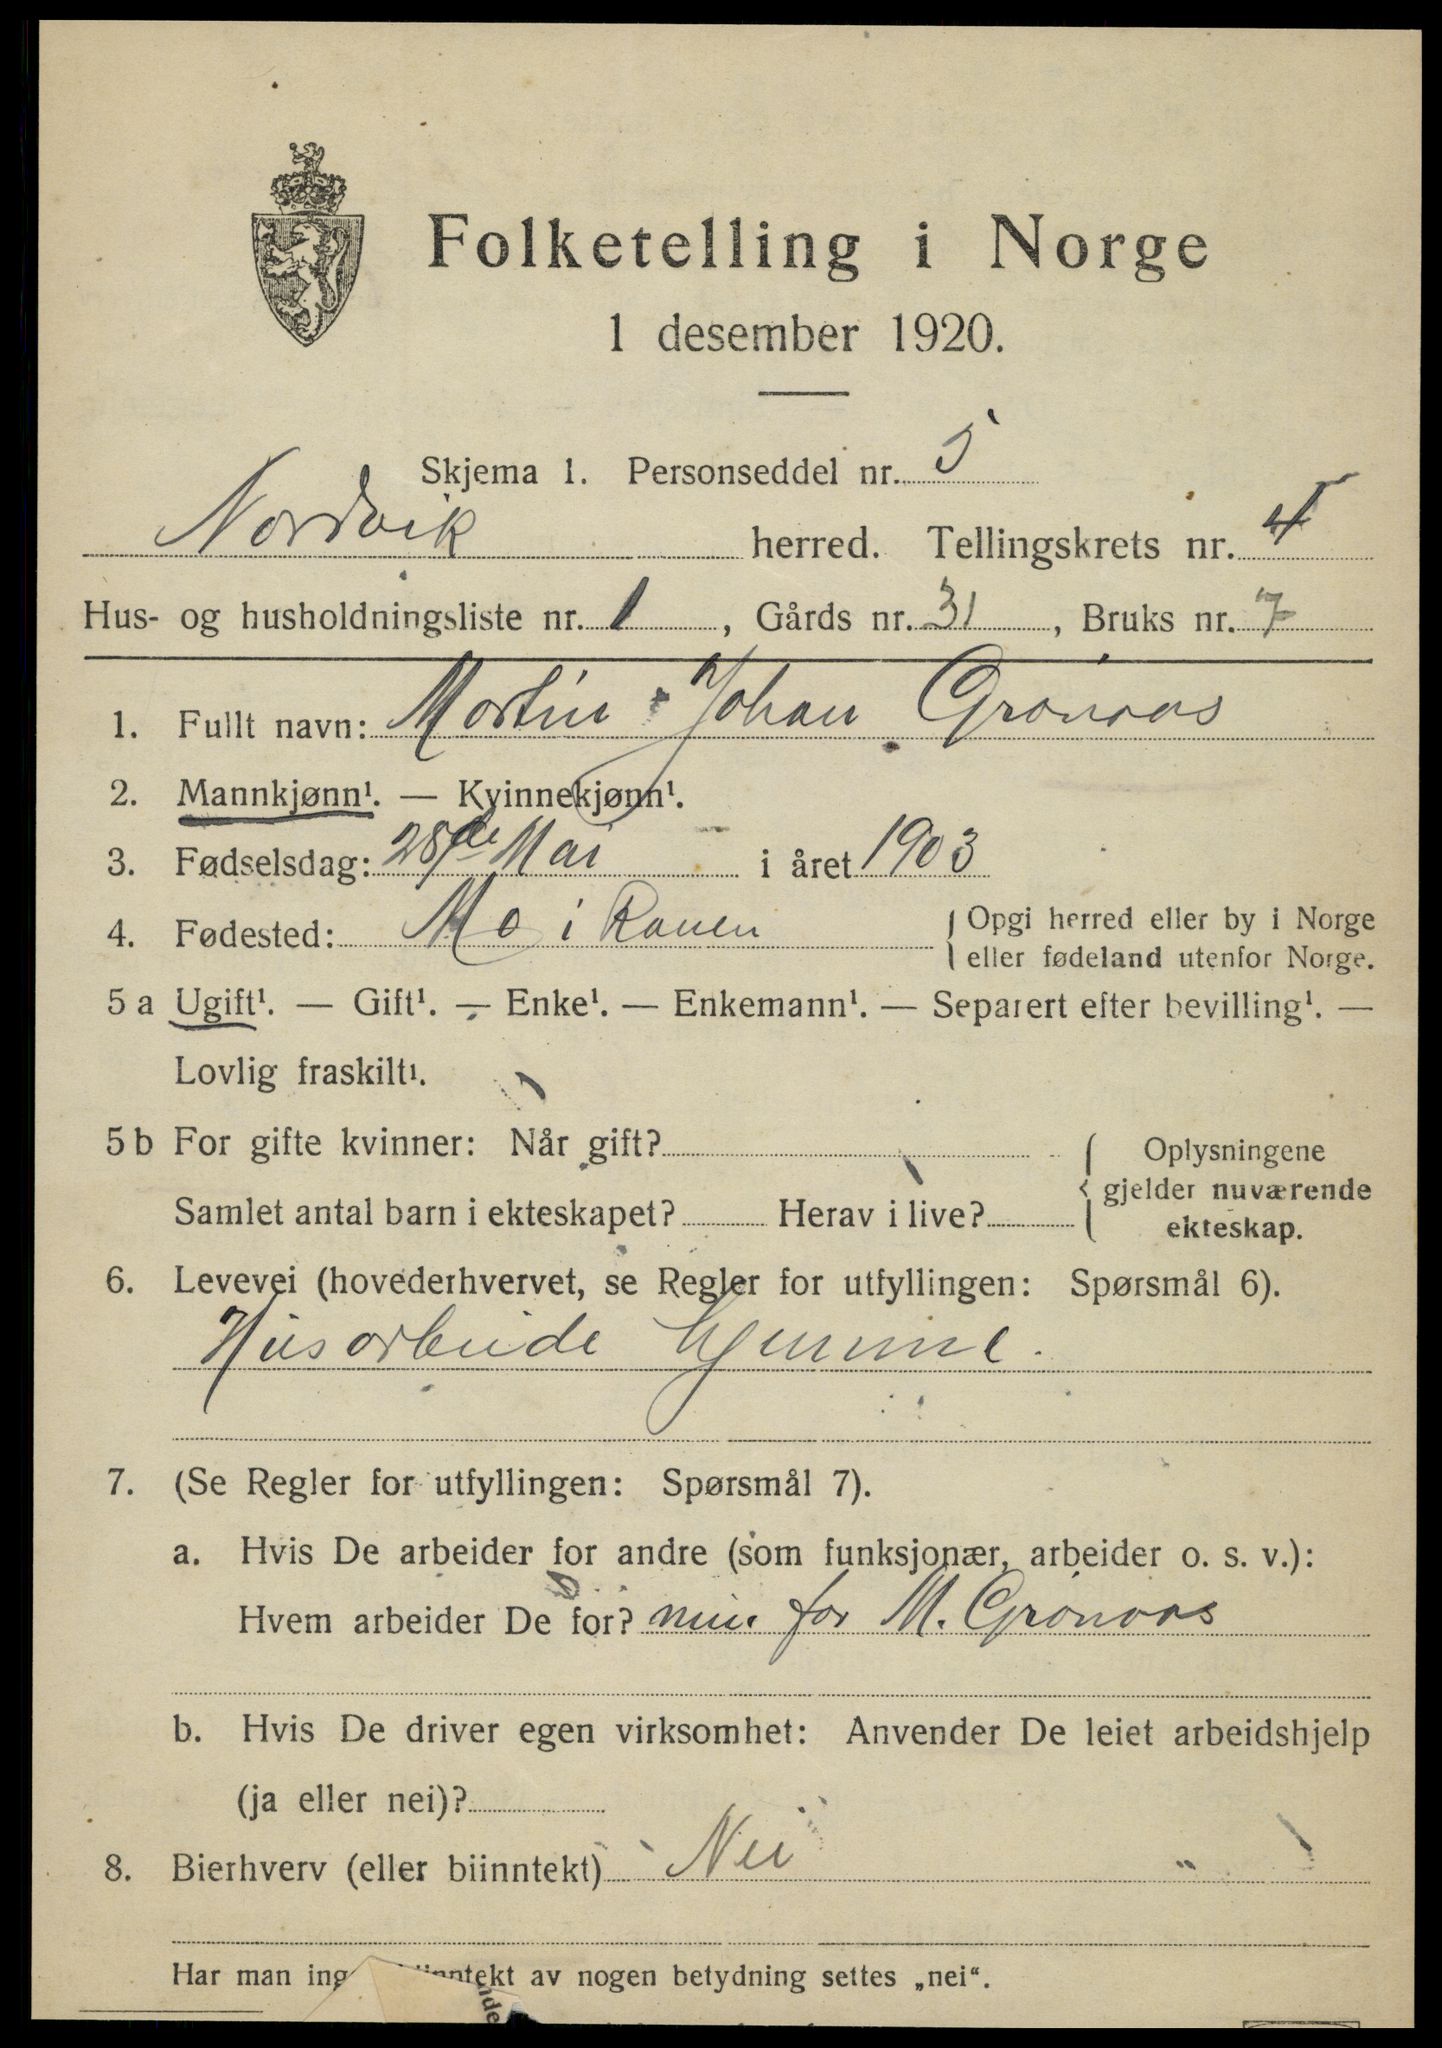 Folketelling i Norge
1 desember 1920.
Skjema 1. Personseddel nr. 5
Nordvik herred. Tellingskrets nr. 4
Hus- og husholdningsliste nr. 1, Gårds nr. 31, Bruks nr. 7
1. Fullt navn: Martin Johan Grönaas
2. Mannkjønn¹. — Kvinnekjønn¹.
3. Fødselsdag: 28de Mai i året 1903
4. Fødested: Mo i Ranen { Opgi herred eller by i Norge
eller fødeland utenfor Norge.
5 a Ugift¹. — Gift¹. — Enke¹. — Enkemann¹. — Separert efter bevilling¹. —
Lovlig fraskilt¹.
5 b For gifte kvinner: Når gift? { Oplysningene
gjelder nuværende
Samlet antal barn i ekteskapet? Herav i live?
ekteskap.
6. Levevei (hovederhvervet, se Regler for utfyllingen: Spørsmål 6).
Husarbeide hjemme.
7. (Se Regler for utfyllingen: Spørsmål 7).
a. Hvis De arbeider for andre (som funksjonær, arbeider o. s. v.):
Hvem arbeider De for? min far M. Grönaas
b. Hvis De driver egen virksomhet: Anvender De leiet arbeidshjelp
(ja eller nei)?
8. Bierhverv (eller biinntekt) Nei
Har man ing biinntekt av nogen betydning settes „nei“.